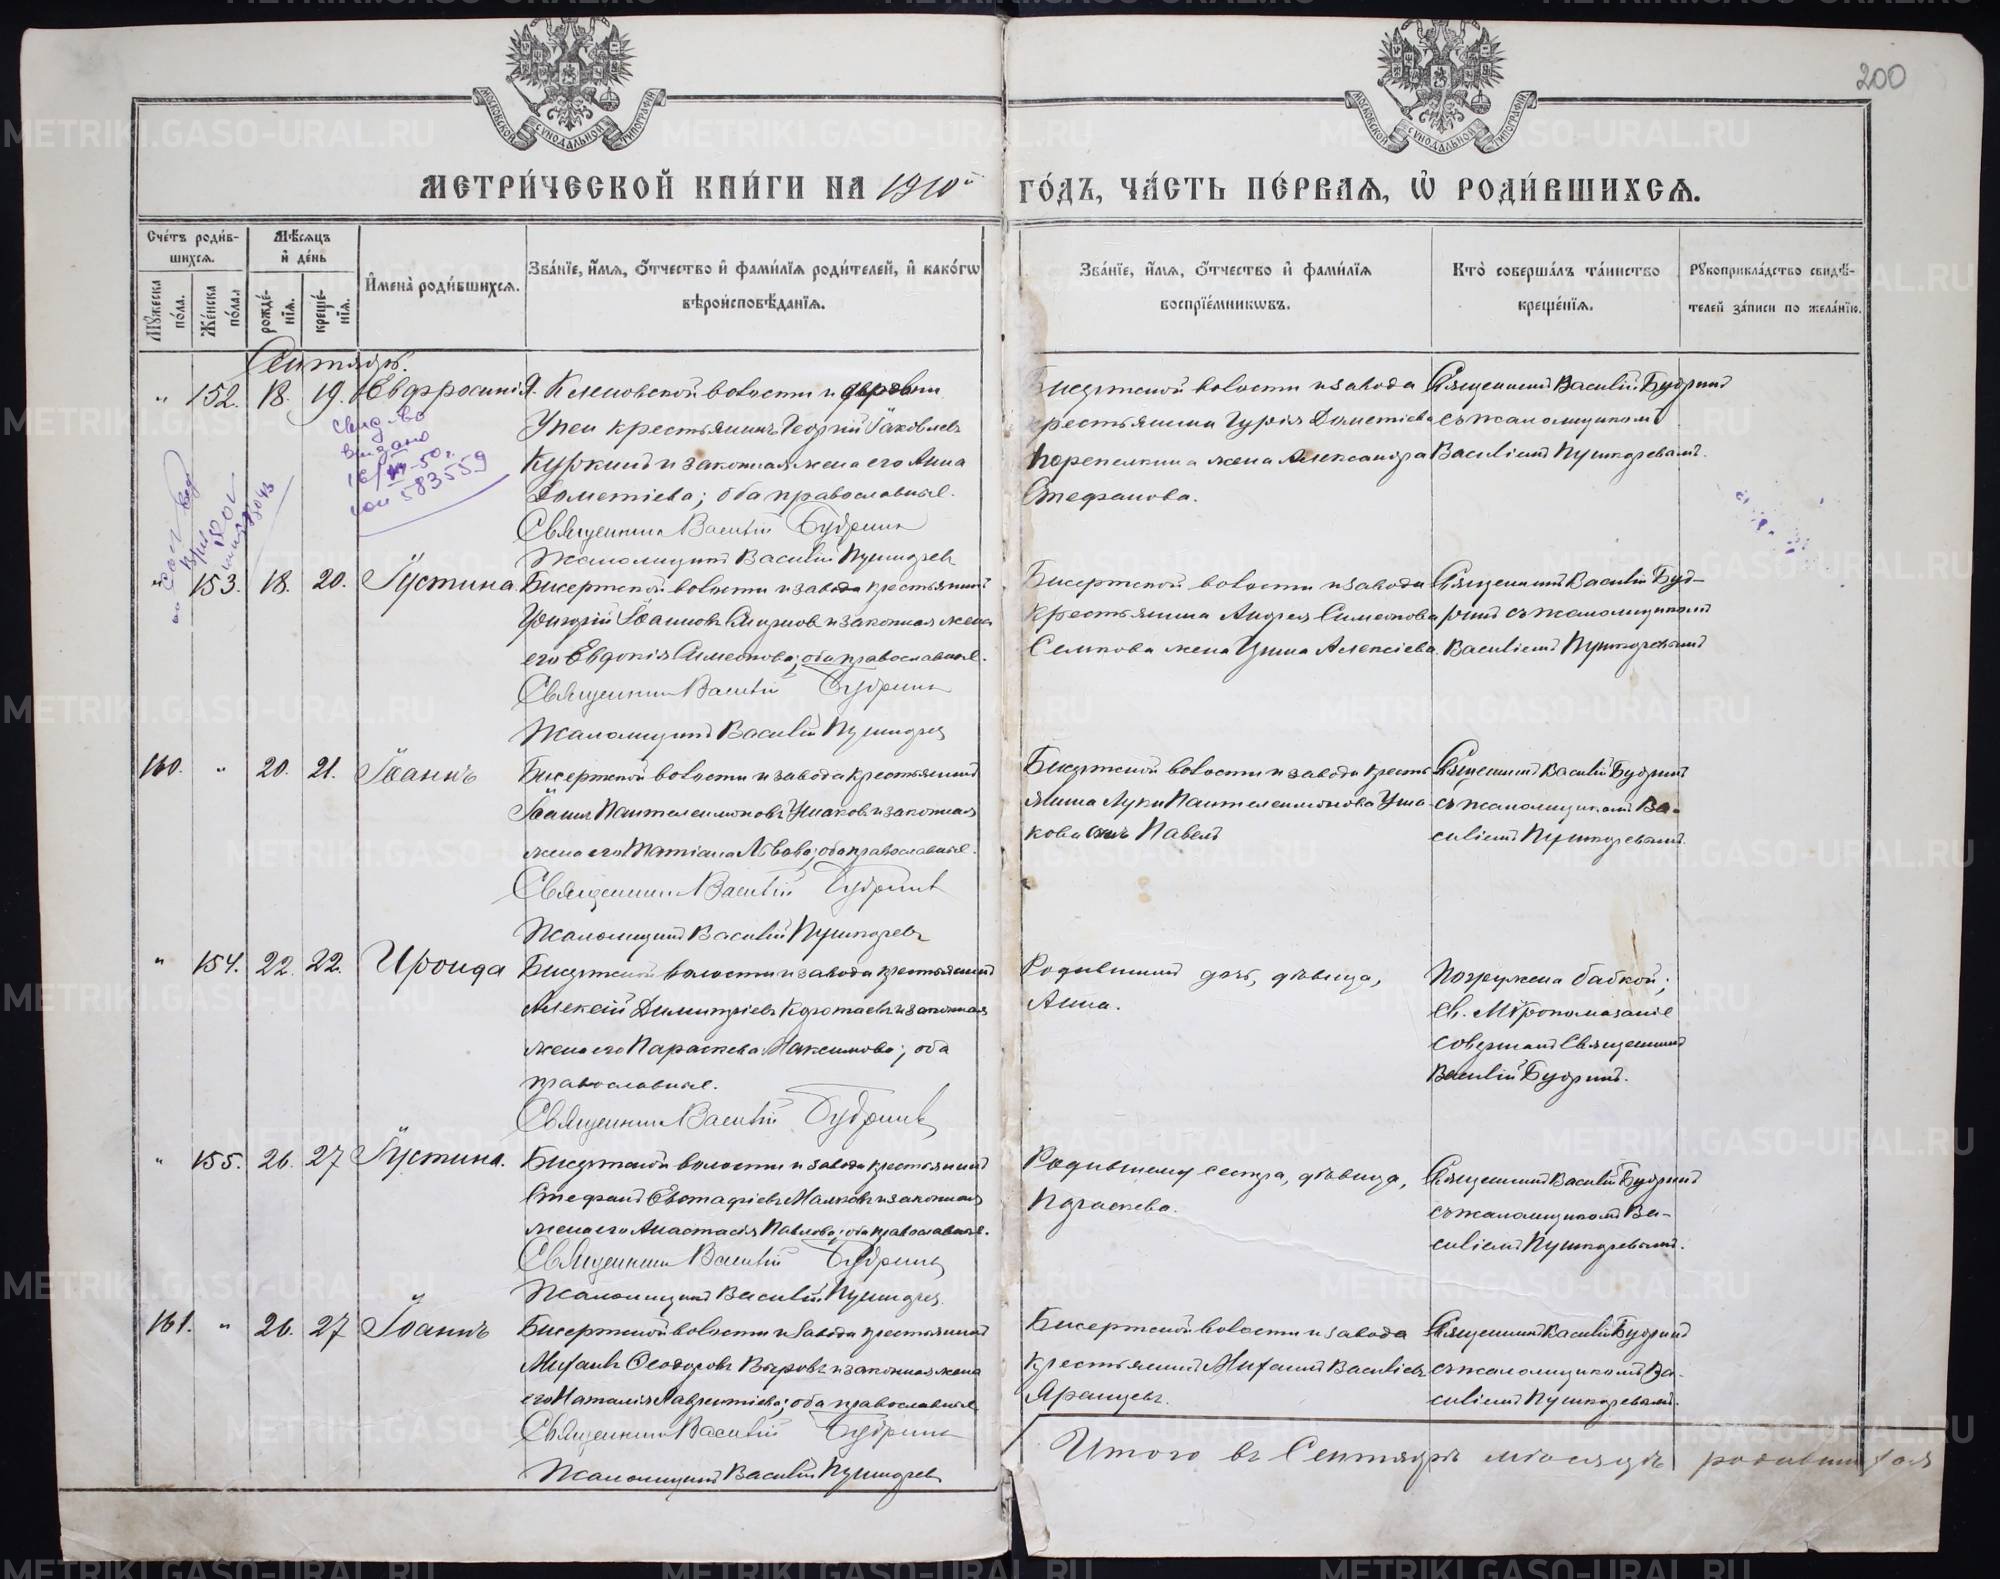 200
МОСКОВСКОЙ СѴНОДАЛЬНОЙ ТИПОГРАФІИ
МОСКОВСКОЙ СѴНОДАЛЬНОЙ ТИПОГРАФІИ
МЕТРИ́ЧЕСКОЙ КНИ́ГИ НА 1910й ГО́ДЪ, ЧА́СТЬ ПЕ́РВАЯ, Ѡ҆ РОДИ́ВШИХСЯ.
Сче́тъ роди́в-
шихся.
Мѣ́сяцъ
и҆ де́нь
Мꙋ́жеска по́ла.
Же́нска по́ла.
рожде́-нїя.
креще́-нїя.
И҆мена̀ роди́вшихся.
Зва́нїе, и҆́мя, ѻ҆́тчество и҆ фами́лїя роди́телей, и҆ како́гѡ
вѣроисповѣ́данїя.
Зва́нїе, и҆́мя, ѻ҆́тчество и҆ фами́лїя
воспрїе́мникѡвъ.
Кто̀ соверша́лъ та́инство
креще́нїя.
Рꙋкоприкла́дство свидѣ́-
телей за́писи по жела́нїю.
Сентябрь.
" 152. 18. 19. Евфросинія. Кленовской волости и деревни
Упеи крестьянинъ Георгій Іаковлевъ
Куркинъ и законная жена его Анна
Дометіева; оба православные.
Священник Василій Будрин
Псаломщикъ Василій Пушкарев
Бисертской волости и завода
крестьянина Гурія Дометіева
Перепелкина жена Александра
Стефанова.
Священникъ Василій Будринъ
съ псаломщикомъ
Василіемъ Пушкаревымъ.
свид-во
выдано
583559
" 153. 18. 20. Іустина. Бисертской волости и завода крестьянинъ
Григорій Іоанновъ Смирнов и законная жена
его Евдокія Симеонова; оба православные.
Священник Василій Будринъ
Псаломщикъ Василій Пушкарев
Бисертской волости и завода
крестьянина Андрея Симеонова
Семкова жена Ирина Алексіева.
Священникъ Василій Буд-
ринъ съ псаломщикомъ
Василіемъ Пушкаревымъ
160. " 20. 21. Іоаннъ Бисертской волости и завода крестьянинъ
Іоаннъ Пантелеимоновъ Ушаковъ и законная
жена его Татіана Львова; оба православные.
Священник Василій Будринъ
Псаломщикъ Василій Пушкаревъ
Бисертской волости и завода кресть-
янина Луки Пантелеимонова Уша-
кова сынъ Павелъ
Священникъ Василій Будринъ
съ псаломщикомъ Ва-
силіемъ Пушкаревымъ.
" 154. 22. 22. Ираида Бисертской волости и завода крестьянинъ
Алексій Димитріевъ Коротаевъ и законная
жена его Параскева Максимова; оба
православные.
Священник Василій Будринъ
Родившейся дочь, дѣвица,
Анна.
Погружена бабкой;
Св. Мѵропомазаніе
совершалъ Священникъ
Василій Будринъ.
" 155. 26. 27 Іустина. Бисертской волости и завода крестьянинъ
Стефанъ Евстафіевъ Малковъ и законная
жена его Анастасія Павлова; оба православные.
Священник Василій Будринъ
Псаломщикъ Василій Пушкарев.
Родившейся сестра, дѣвица,
Параскева.
Священникъ Василій Будринъ
съ псаломщикомъ Ва-
силіемъ Пушкаревымъ.
161. " 26. 27 Іоаннъ Бисертской волости и завода крестьянинъ
Михаилъ Ѳеодоровъ Выровъ и законная жена
его Наталія Лаврентіева; оба православные
Священник Василій Будрин
Псаломщикъ Василій Пушкаревъ
Бисертской волости и завода
крестьянинъ Михаилъ Василіевъ
Яранцевъ.
Священникъ Василій Будринъ
съ псаломщикомъ Ва-
силіемъ Пушкаревымъ.
Итого въ Сентябрѣ мѣсяцѣ родившихся
METRIKI.GASO-URAL.RU